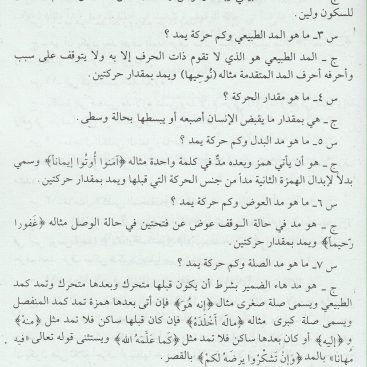 للسكون ولين.
س ٣ـ ما هو المد الطبيعي وكم حركة يمد ؟
ج ـ المد الطبيعي هو الذي لا تقوم ذات الحرف إلا به ولا يتوقف على سبب
وأحرفه أحرف المد المتقدمة مثاله (نُوحِيها) ويمد بمقدار حركتين.
س ٤ـ ما هو مقدار الحركة ؟
ج ـ هي بمقدار ما يقبض الإنسان أصبعه أو يبسطها بحالة وسطى.
س ٥ـ ما هو مد البدل وكم حركة يمد ؟
ج ـ هو أن يأتي همز وبعده مدٌّ في كلمة واحدة مثاله ﴿آمَنوا أُوتُوا إيماناً﴾ وسمي
بدلاً لإبدال الهمزة الثانية مداً من جنس الحركة التي قبلها ويمد بمقدار حركتين.
س ٦ـ ما هو مد العوض وكم حركة يمد ؟
ج ـ هو مد في حالة الوقف عوض عن فتحتين في حالة الوصل مثاله ﴿غَفورا
رَحيماً﴾ ويمد بمقدار حركتين.
س ٧ـ ما هو مد الصلة وكم حركة يمد ؟
ج ـ هو مد هاء الضمير بشرط أن يكون قبلها متحرك وبعدها متحرك وتمد كمد
الطبيعي ويسمى صلة صغرى مثال ﴿إنه هُوَ﴾ فإن أتى بعدها همزة تمد كمد المنفصل
ويسمى صلة كبرى مثاله ﴿مالَه أَخْلَدَهُ﴾ فإن كان قبلها ساكن فلا تمد مثل ﴿منهُ﴾
و ﴿إليه﴾ أو كان بعدها ساكن فلا تمد مثل ﴿كما عَلَّمَهُ الله﴾ ويستثنى قوله تعالى «فيهِ
مُهانا» بالمد ﴿وَإِنْ تَشكُرُوا يرضَهُ لكمْ﴾ بالقصر.